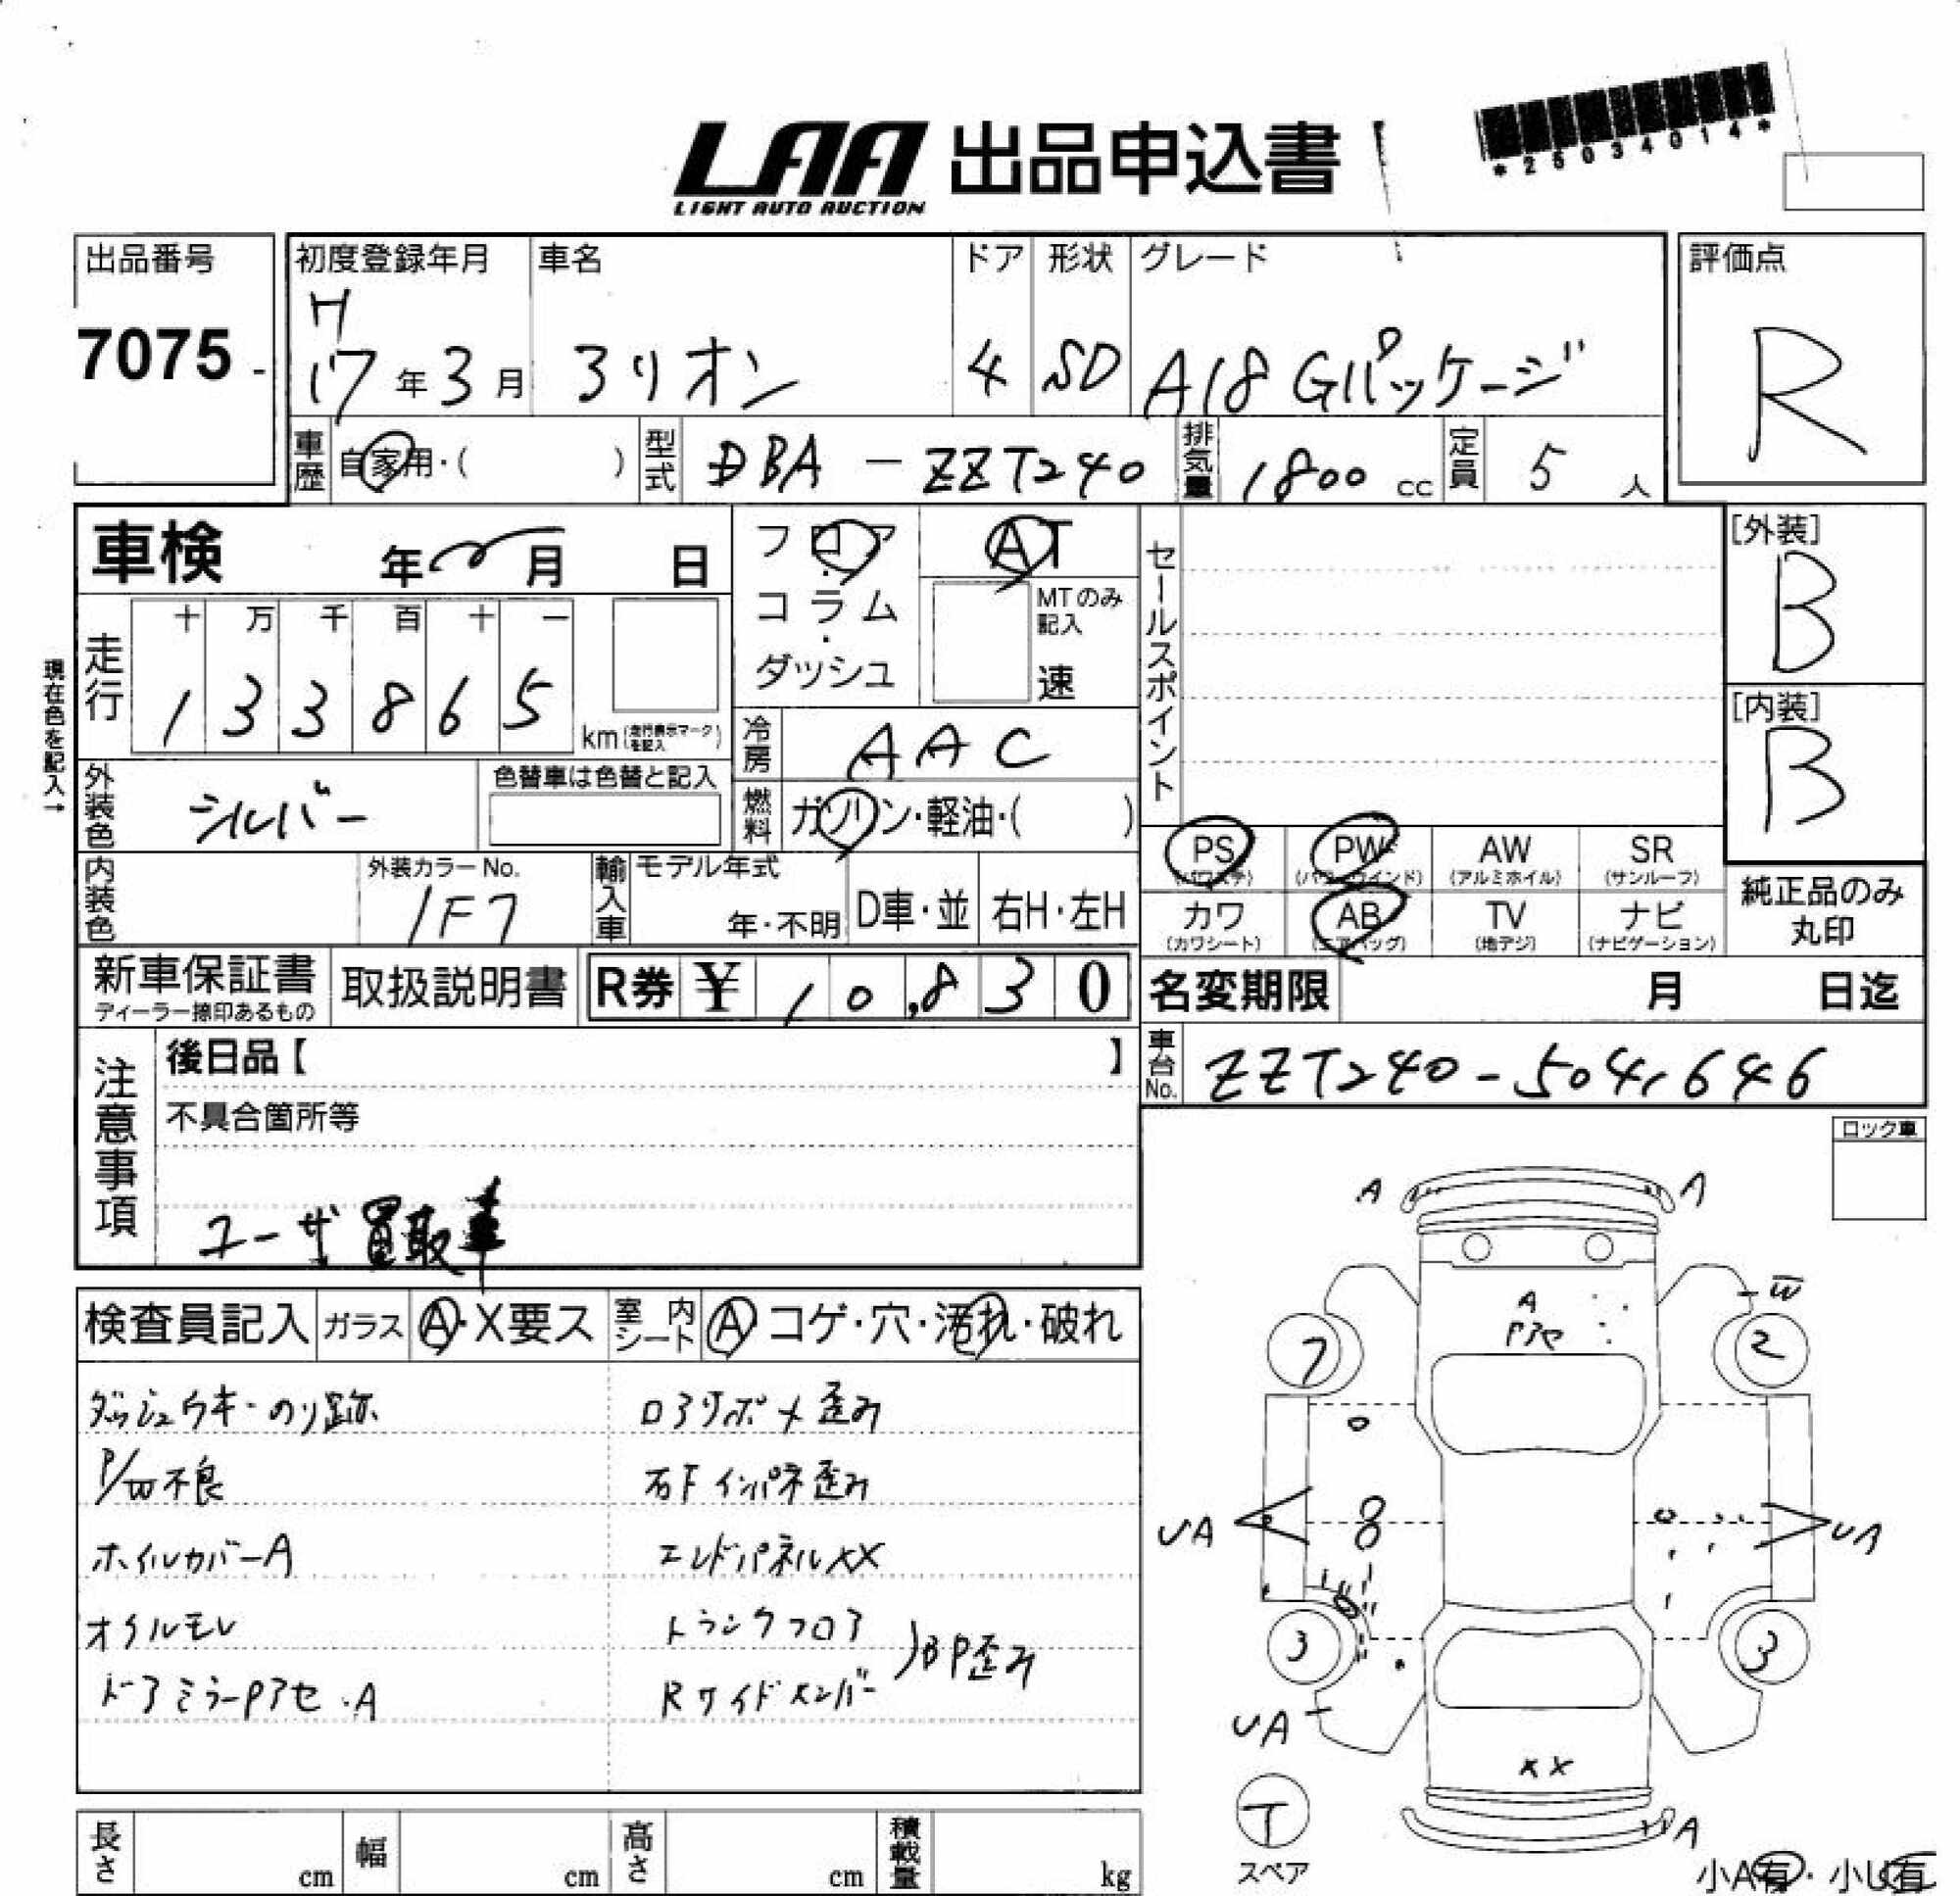 LAA 出品申込書
LIGHT AUTO AUCTION
*25034014*
出品番号 初度登録年月 車名 ドア 形状 グレード 評価点
7075 - H 17年3月 アリオン 4 SD A18 Gパッケージ R
車歴 自家用・( ) 型式 DBA - ZZT240 排気量 1800 cc 定員 5 人
車検 年 月 日 フロア・コラム・ダッシュ AT
MTのみ記入 速
セールスポイント
[外装] B
[内装] B
現在色を記入→
走行 十 万 千 百 十 一
1 3 3 8 6 5 km(走行表示マークを記入)
冷房 AAC
外装色 シルバー 色替車は色替と記入
燃料 ガソリン・軽油・( )
PS (パワステ) PW (パワーウインド) AW (アルミホイル) SR (サンルーフ)
カワ (カワシート) AB (エアバッグ) TV (地デジ) ナビ (ナビゲーション)
純正品のみ丸印
内装色 外装カラーNo. 1F7 輸入車 モデル年式 年・不明 D車・並 右H・左H
新車保証書 ディーラー捺印あるもの 取扱説明書 R券 ¥ 10,830
名変期限 月 日迄
車台No. ZZT240-5041646
注意事項 後日品【 】
不具合箇所等
ユーザ買取車
ロック車
検査員記入 ガラス A・X要ス 室内シート A コゲ・穴・汚れ・破れ
ダッシュウキ・のり跡 コアサポメ歪み
P/W不良 右Fインパネ歪み
ホイルカバーA エンドパネルXX
オイルモレ トランクフロア
ドアミラーPアセ・A Rサイドメンバー )BP歪み
A A
W
A
Pアセ
7 2
UA UA
3 3
UA
XX
T
スペア
A
小A有・小U有
長さ cm 幅 cm 高さ cm 積載量 kg